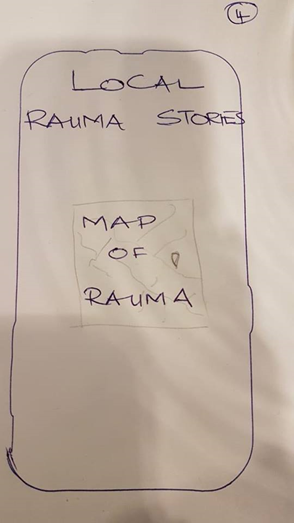 4
LOCAL
RAUMA STORIES
MAP
OF
RAUMA